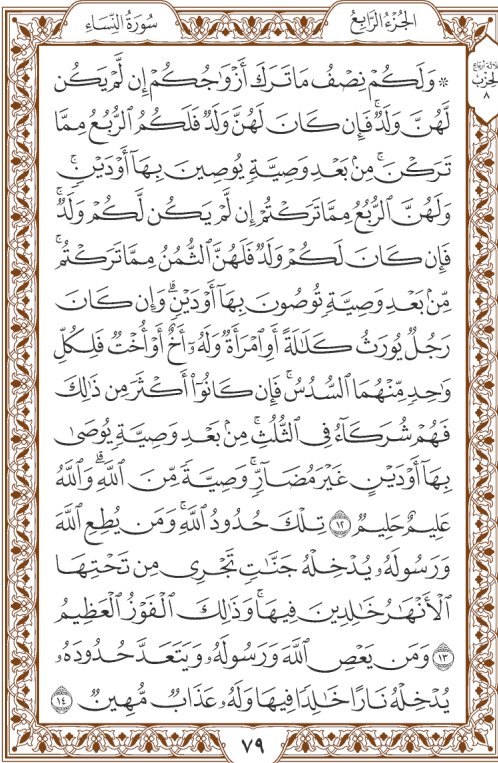 الجُزْءُ الرَّابِعُ
سُورَةُ النِّسَاءِ
ثلاثة أرباع
الحِزْب
٨
* وَلَكُمْ نِصْفُ مَا تَرَكَ أَزْوَٰجُكُمْ إِن لَّمْ يَكُن
لَّهُنَّ وَلَدٌۚ فَإِن كَانَ لَهُنَّ وَلَدٌ فَلَكُمُ ٱلرُّبُعُ مِمَّا
تَرَكْنَۚ مِنۢ بَعْدِ وَصِيَّةٍ يُوصِينَ بِهَآ أَوْ دَيْنٍۚ
وَلَهُنَّ ٱلرُّبُعُ مِمَّا تَرَكْتُمْ إِن لَّمْ يَكُن لَّكُمْ وَلَدٌۚ
فَإِن كَانَ لَكُمْ وَلَدٌ فَلَهُنَّ ٱلثُّمُنُ مِمَّا تَرَكْتُمۚ
مِّنۢ بَعْدِ وَصِيَّةٍ تُوصُونَ بِهَآ أَوْ دَيْنٍۗ وَإِن كَانَ
رَجُلٌ يُورَثُ كَلَٰلَةً أَوِ ٱمْرَأَةٌ وَلَهُۥٓ أَخٌ أَوْ أُخْتٌ فَلِكُلِّ
وَٰحِدٍ مِّنْهُمَا ٱلسُّدُسُۚ فَإِن كَانُوٓا۟ أَكْثَرَ مِن ذَٰلِكَ
فَهُمْ شُرَكَآءُ فِى ٱلثُّلُثِۚ مِنۢ بَعْدِ وَصِيَّةٍ يُوصَىٰ
بِهَآ أَوْ دَيْنٍ غَيْرَ مُضَآرٍّۚ وَصِيَّةً مِّنَ ٱللَّهِۗ وَٱللَّهُ
عَلِيمٌ حَلِيمٌ ١٢ تِلْكَ حُدُودُ ٱللَّهِۚ وَمَن يُطِعِ ٱللَّهَ
وَرَسُولَهُۥ يُدْخِلْهُ جَنَّٰتٍ تَجْرِى مِن تَحْتِهَا
ٱلْأَنْهَٰرُ خَٰلِدِينَ فِيهَاۚ وَذَٰلِكَ ٱلْفَوْزُ ٱلْعَظِيمُ
١٣ وَمَن يَعْصِ ٱللَّهَ وَرَسُولَهُۥ وَيَتَعَدَّ حُدُودَهُۥ
يُدْخِلْهُ نَارًا خَٰلِدًا فِيهَا وَلَهُۥ عَذَابٌ مُّهِينٌ ١٤
٧٩